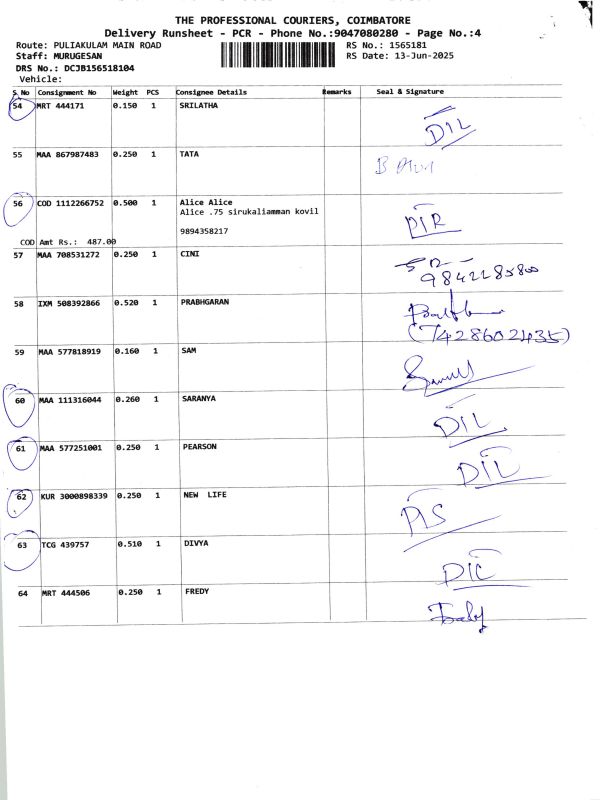 THE PROFESSIONAL COURIERS, COIMBATORE
Delivery Runsheet - PCR - Phone No.:9047080280 - Page No.:4
Route: PULIAKULAM MAIN ROAD RS No.: 1565181
Staff: MURUGESAN RS Date: 13-Jun-2025
DRS No.: DCJB156518104
Vehicle:
S No Consignment No Weight PCS Consignee Details Remarks Seal & Signature
54 MRT 444171 0.150 1 SRILATHA
DIL
55 MAA 867987483 0.250 1 TATA
56 COD 1112266752 0.500 1 Alice Alice
Alice .75 sirukaliamman kovil
9894358217
COD Amt Rs.: 487.00
57 MAA 708531272 0.250 1 CINI
9842285800
58 IXM 508392866 0.520 1 PRABHGARAN
(7428602435)
59 MAA 577818919 0.160 1 SAM
60 MAA 111316044 0.260 1 SARANYA
DIL
61 MAA 577251001 0.250 1 PEARSON
DIL
62 KUR 3000898339 0.250 1 NEW LIFE
63 TCG 439757 0.510 1 DIVYA
64 MRT 444506 0.250 1 FREDY